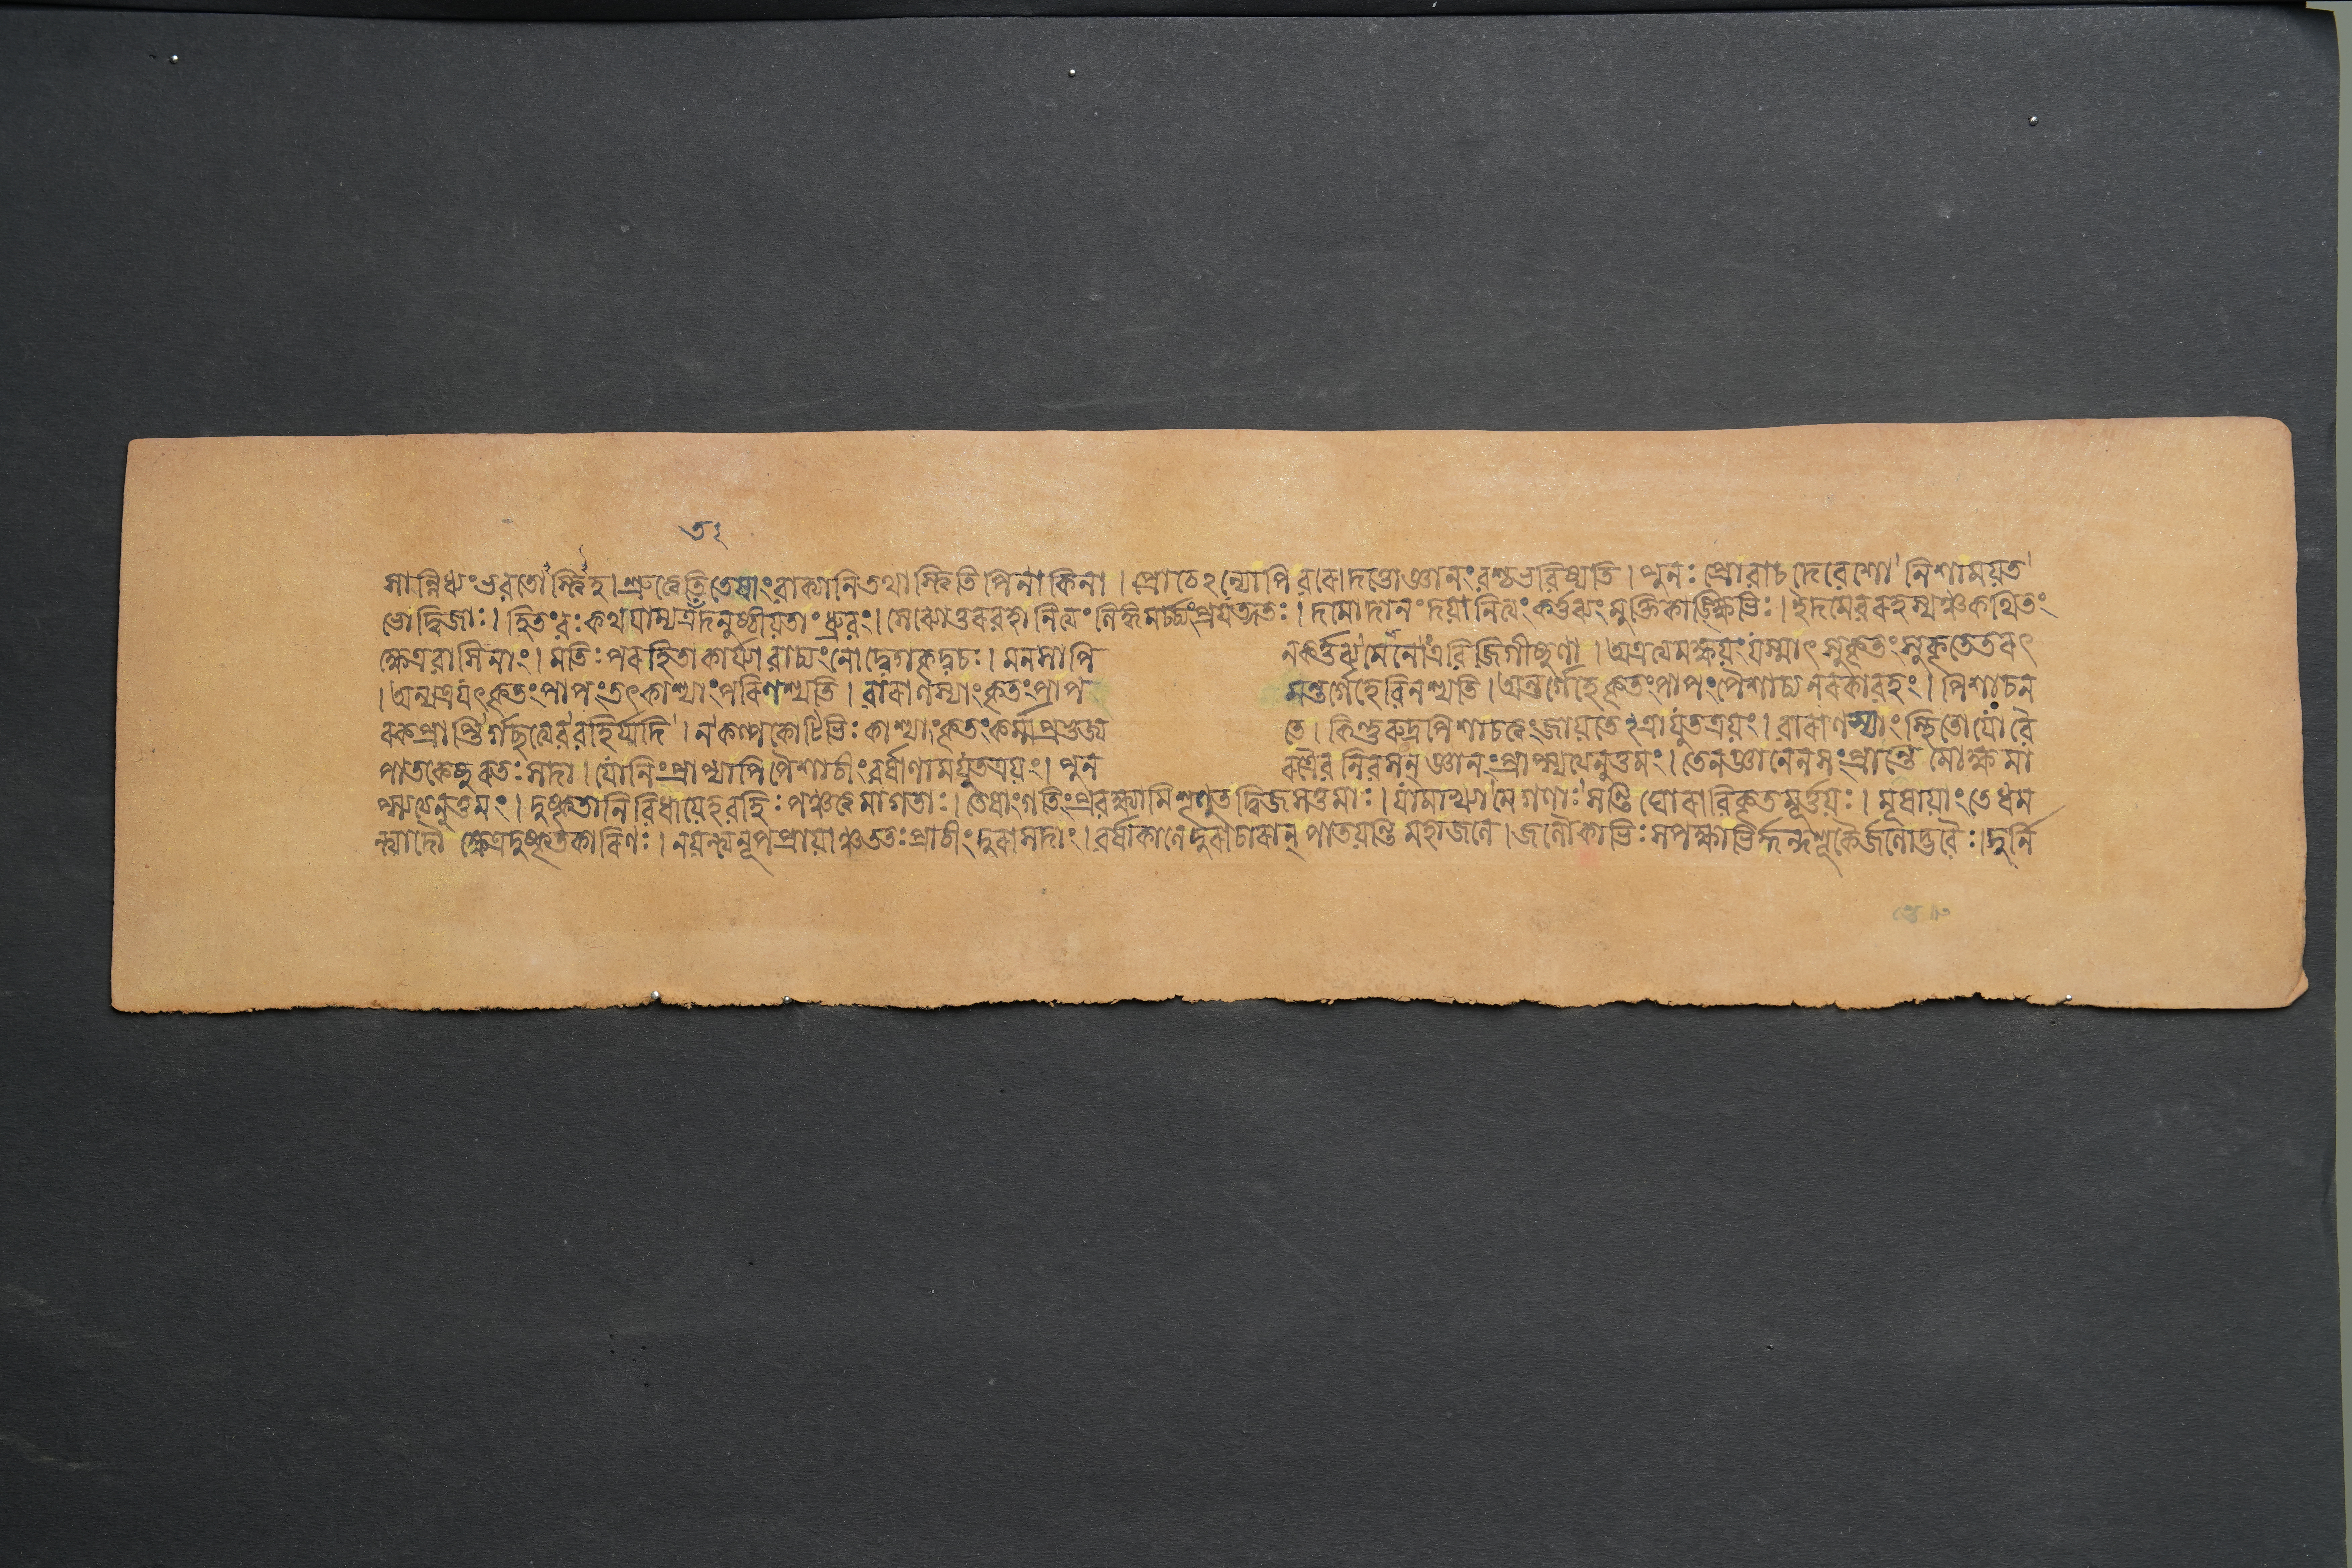 সান্নিধ্যংভবতোস্ত্বিহ।শ্রুত্বেতিতেষাংবাক্যানিতথাস্ত্বিতিপিনাকিনা।প্রোচেঽন্যোপিবরোদত্তোজ্ঞানংবশ্চভবিষ্যতি।পুনঃপ্রোবাচদেবেশোনিশাময়ত
ভোদ্বিজাঃ।হিতংবঃকথযাম্যত্রতদনুষ্ঠীয়তাংধ্রুবং।সেব্যোত্তরবহানিত্যংলিঙ্গমর্চ্চ্যংপ্রযত্নতঃ।দমোদানংদয়ানিত্যংকর্ত্তব্যংমুক্তিকাঙ্ক্ষিভিঃ।ইদমেবরহস্যঞ্চকথিতং
ক্ষেত্রবাসিনাং।মতিঃপরহিতাকার্য্যাবাচ্যংনোদ্বেগকৃদ্বচঃ।মনসাপি নকর্ত্তব্যমেনোত্রবিজিগীষুণা।অত্রত্যমক্ষয়ংযস্মাৎসুকৃতংসুকৃতেতরৎ
।অন্যত্রযৎকৃতংপাপংতৎকাশ্যাংপরিণশ্যতি।বারাণস্যাংকৃতংপাপ মন্তর্গেহেবিনশ্যতি।অন্তর্গেহেকৃতংপাপংপৈশাচ্যনরকাবহং।পিশাচন
রকপ্রাপ্তির্গচ্ছত্যেববহির্যদি।নকল্পকোটিভিঃকাশ্যাংকৃতংকর্ম্মপ্রমৃজ্য তে।কিন্তুরুদ্রপিশাচত্বংজায়তেঽত্রাযুতত্রয়ং।বারাণস্যাংস্থিতোযোবৈ
পাতকেষুরতঃসদা।যোনিংপ্রাপ্যাপিপৈশাচীংবর্ষাণামযুতত্রয়ং।পুন রত্রৈবনিবসন্জ্ঞানংপ্রাপ্স্যত্যনুত্তমং।তেনজ্ঞানেনসংপ্রাপ্তেমোক্ষমা
প্স্যত্যনুত্তমং।দুষ্কৃতানিবিধায়েহবহিঃপঞ্চত্বমাগতাঃ।তেষাংগতিংপ্রবক্ষ্যামিশৃণুতদ্বিজসত্তমাঃ।যামাখ্যামেগণাঃসন্তিঘোরাবিকৃতমূর্ত্তয়ঃ।মূষায়াংতেধম
ন্ত্যাদৌ ক্ষেত্রদুষ্কৃতকারিণঃ।নয়ন্ত্যনূপপ্রায়াঞ্চততঃপ্রাচীংদুরাসদাং।বর্ষাকালেদুরাচারান্পাতয়ন্তিমহাজলে।জলৌকাভিঃসপক্ষাভির্দ্দন্দশূকৈর্জলোদ্ভবৈঃ।দুর্নি